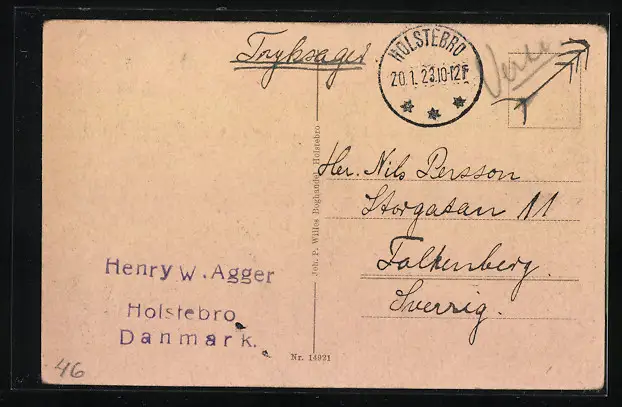 Tryksager
HOLSTEBRO
20.1.23.10-12F
Her. Nils Persson
Storgatan 11
Falkenberg.
Sverrig.
Joh. P. Willes Boghandel, Holstebro
Henry W. Agger
Holstebro
Danmark.
Nr. 14931
46